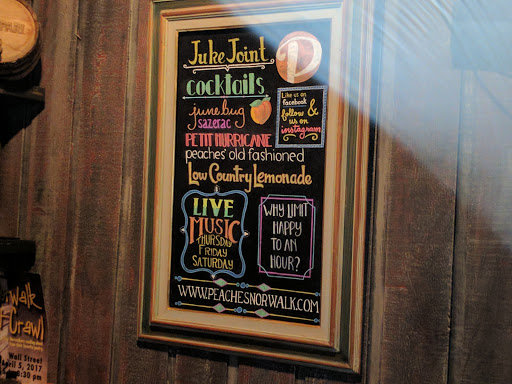 Juke Joint
P
cocktails
june bug
sazerac
PETIT HURRICANE
peaches' old fashioned
Low Country Lemonade
Like us on
facebook &
follow
us on
instagram
LIVE
MUSIC
THURSDAY
FRIDAY
SATURDAY
WHY LIMIT
HAPPY
TO AN
HOUR?
WWW.PEACHESNORWALK.COM
Walk
Crawl
Wall Street
April 5, 2017
:30 pm